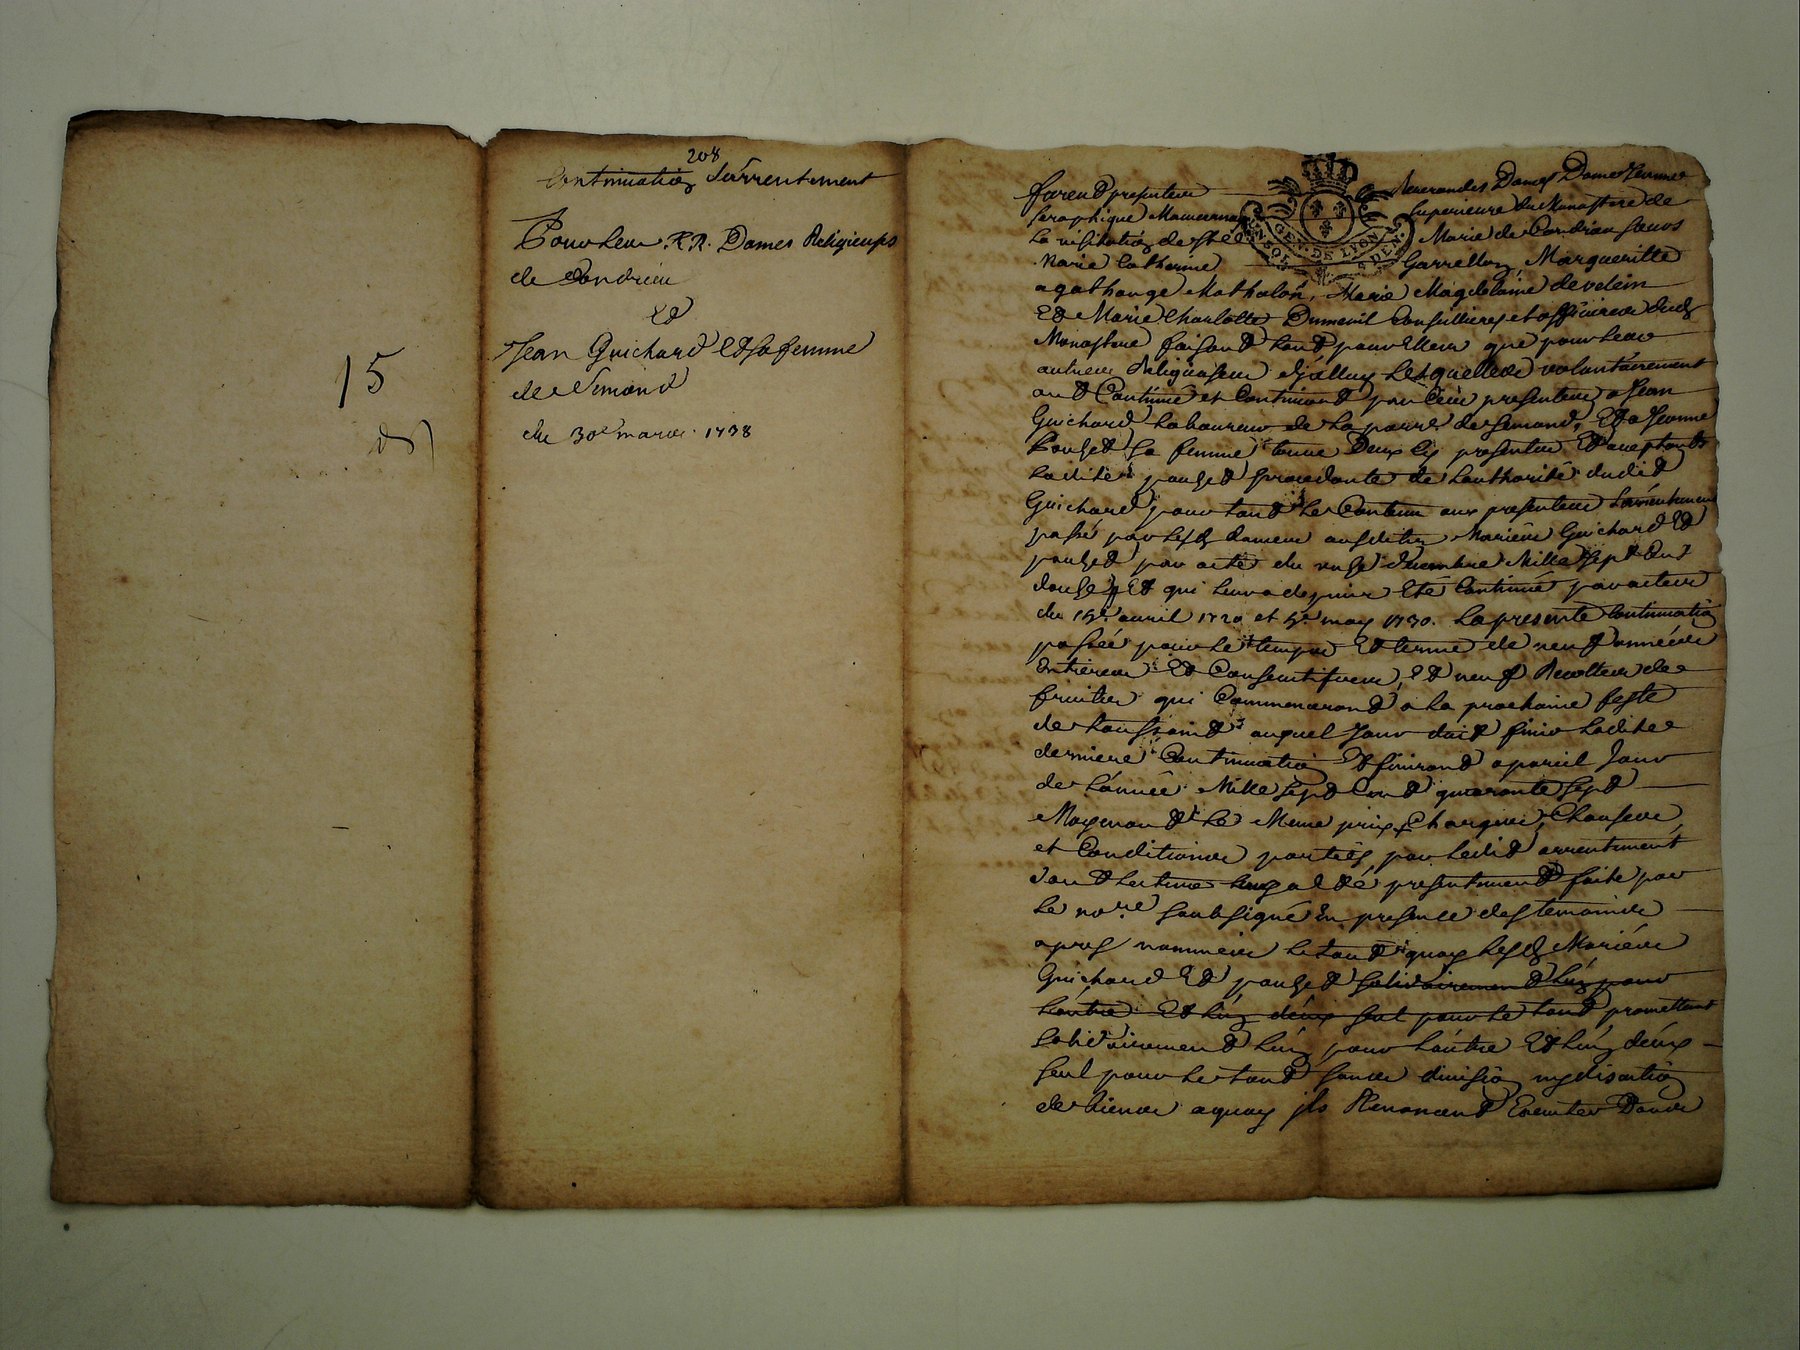 15
208
Continuation d'arrentement
Pour leur R.R. Dames Religieuses
de Condrieu
Et
Jean Guichard Et sa femme
de Semond
du 30e mars 1738
GEN. DE LYON
furent presentes Reverendes Dames Dame Jeanne
seraphique Superieure du Monastere de
la visitation de Ste Marie de Condrieu soeurs
Marie Catherine Garrellon Margueritte
agathange Mathalon, Marie Magdelaine de velein
Et Marie Charlotte Dumenil Conseillieres et officieres dud
Monastere faisant tant pour Elles que pour les
autres Religieuses d'jcelluy lesquelles volontairement
ont Continué et Continuent par Ces presentes a Jean
Guichard laboureur de la parr. de semond, Et a Jeanne
pouzet sa femme tous Deux icy presentes Et acceptants
ladite pouzet procedante de l'authorité dudit
Guichard pour tout le Contenu aux presentes l'arrentement
passé par lesd dames ausdits Mariés Guichard Et
pouzet par acte du onze decembre Mille sept Cent
douze Et qui leur a depuis Eté Continué par actes
du 15e avril 1720 et 5e may 1730. La presente Continuation
passée pour le temps Et terme de neuf années
Entieres Et Consecutives, Et neuf Recoltes de
fruits qui Commenceront a la prochaine feste
de toussaint auquel Jour doit finir ladite
derniere Continuation Et finiront a pareil Jour
de l'année Mille sept Cent quarante sept
Moyenant le Meme prix, Charges, Clauses,
et Conditions portées par ledit arrentement
dont lecture leur a eté presentement faite par
le nore soubsigné En presence des temoins
apres nommés le tout quoy lesd Mariés
Guichard Et pouzet solidairement l'un pour
l'autre Et l'un d'eux seul pour le tout promettent
solidairement l'un pour l'autre Et l'un d'eux
seul pour le tout sans division ny discution
de biens a quoy jls Renoncent Executer Dans